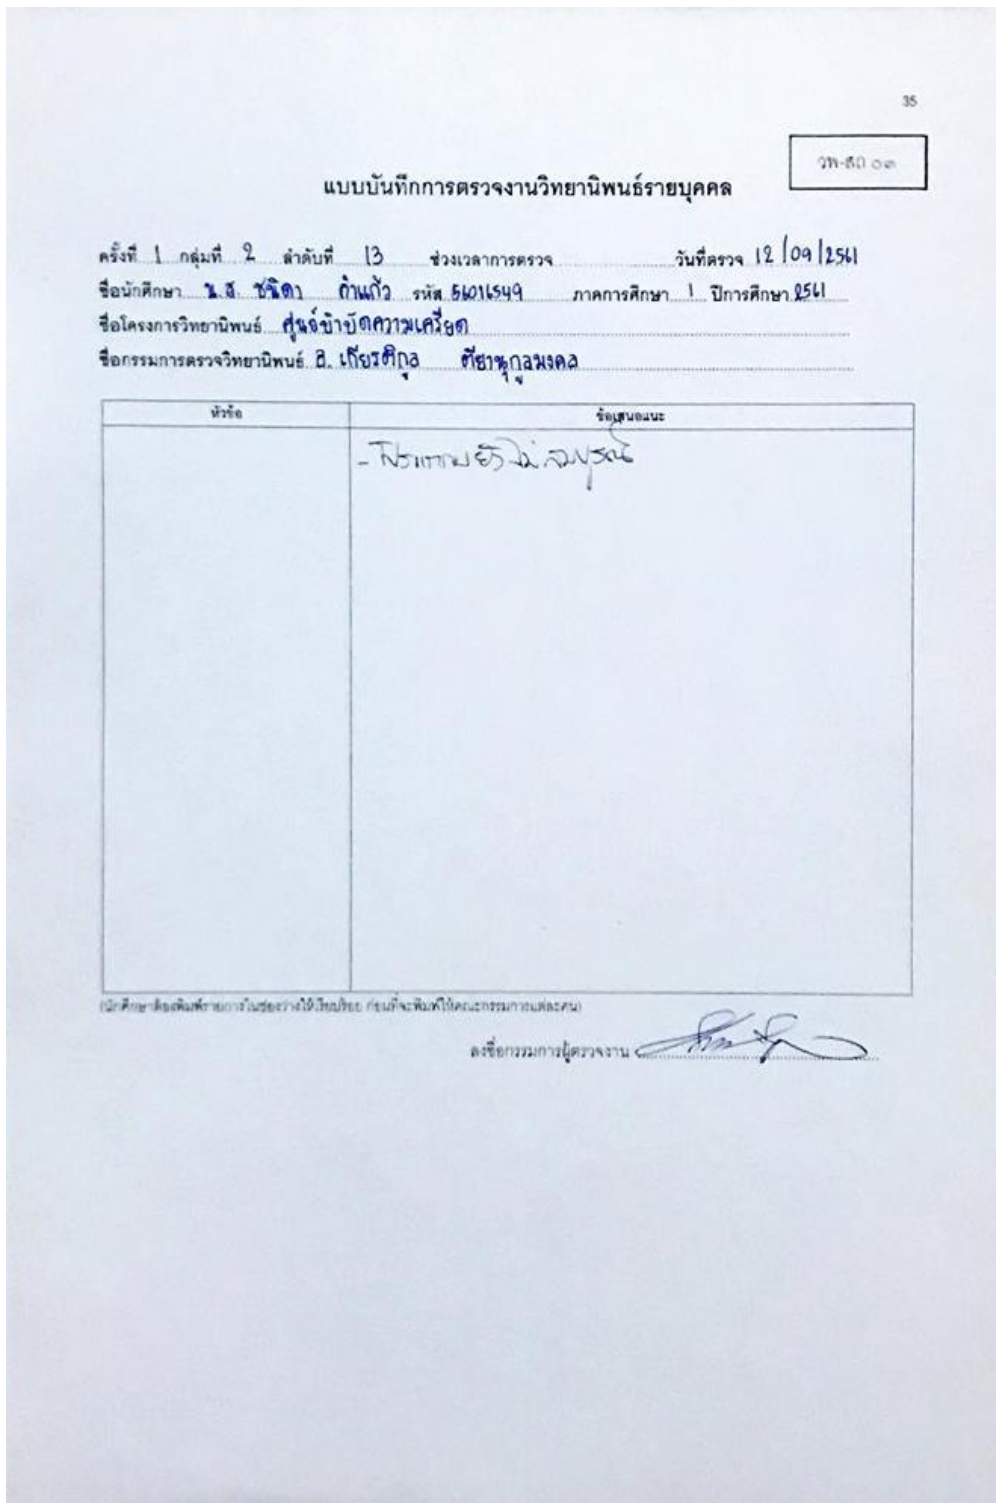 35
วพ-สถ ๐๓
แบบบันทึกการตรวจงานวิทยานิพนธ์รายบุคคล
ครั้งที่ 1 กลุ่มที่ 2 ลำดับที่ 13 ช่วงเวลาการตรวจ วันที่ตรวจ 12/09/2561
ชื่อนักศึกษา น.ส. ชนิดา ถ้ำแก้ว รหัส 56016549 ภาคการศึกษา 1 ปีการศึกษา 2561
ชื่อโครงการวิทยานิพนธ์ ศูนย์บำบัดความเครียด
ชื่อกรรมการตรวจวิทยานิพนธ์ อ. เกียรติกุล ตียานุกูลมงคล
หัวข้อ ข้อเสนอแนะ
- โปรแกรมยังไม่สมบูรณ์
(นักศึกษาต้องพิมพ์รายการในช่องว่างให้เรียบร้อย ก่อนที่จะพิมพ์ให้คณะกรรมการแต่ละคน)
ลงชื่อกรรมการผู้ตรวจงาน